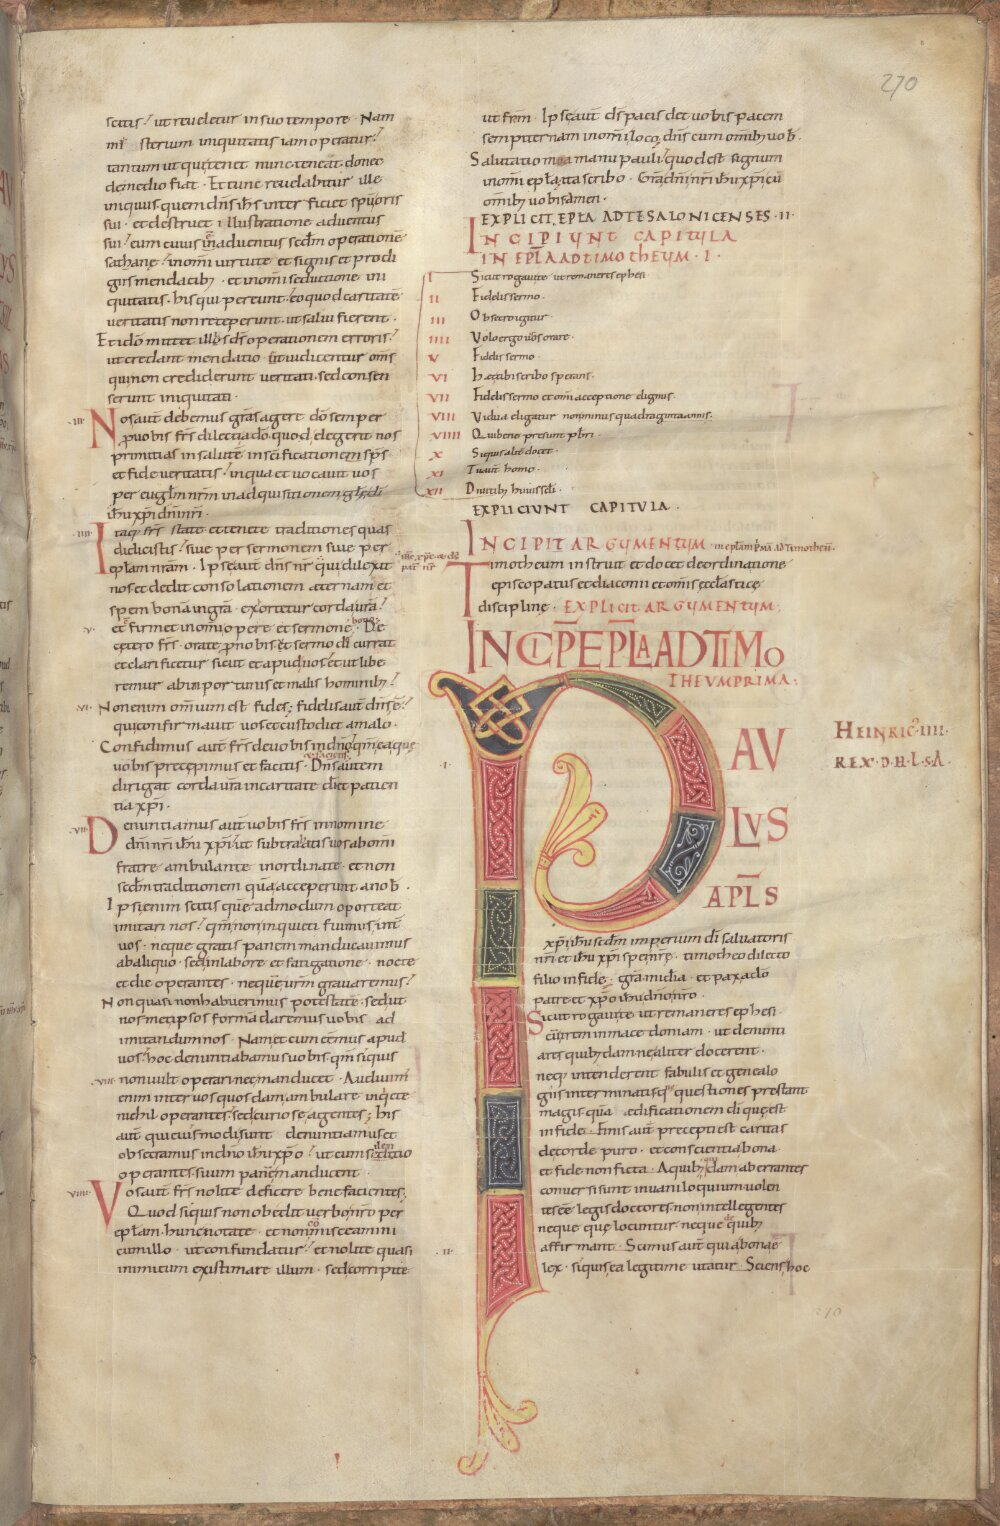 270
scitis? ut reveletur in suo tempore. Nam
mi sterium iniquitatis iam operatur?
tantum ut qui tenet nunc teneat. donec
de medio fiat. Et tunc revelabitur ille
iniquus quem dns ihs interficiet spu oris
sui. et destruet illustratione adventus
sui? eum cuius est adventus secdm operatione
sathanę? in omi virtute et signis et prodi
giis mendacib; et in omi seductione ini
quitatis. his qui pereunt? eo quod caritate
veritatis non receperunt. ut salvi fierent.
Et ido mittet illis ds operationem erroris?
ut credant mendatio. ut iudicentur oms
qui non crediderunt veritati. sed consen
serunt iniquitati.
III. Nos aut debemus gras agere do semper
pro vobis frs dilecti a do. quod elegerit nos
primitias in salute in scificationem sps
et fide veritatis? in qua et vocavit vos
per euglm nrm in adquisitionem glę dni
ihu xpi dni nri.
IIII. Itaq; frs state. et tenete traditiones quas
didicistis? sive per sermonem sive per
eplam nram. Ipse aut dns nr qui dilexit
nos et dedit consolationem aeternam et
spem bona in gra. exortetur corda vra?
v. et firmet in omi opere et sermone bono. De
cetero frs. orate pro nobis et sermo di currat
et clarificetur sicut et apud vos et ut libe
remur ab inportunis et malis hominib;?
VI. Non enim omium est fides; fidelis aut ds e?
qui confirmavit vos et custodiet a malo.
Confidimus aut frs de vobis in dno qm ea quę
vobis precepimus et facitis. Dns autem
dirigat corda vra in caritate di et patien
tia xpi.
VII. Denuntiamus aut vobis frs in nomine
dni nri ihu xpi. ut subtrahatis vos ab omi
fratre ambulante inordinate. et non
secdm traditionem qua acceperunt a nob.
Ipsi enim scitis quę admodum oporteat
imitari nos? qm non inquieti fuimus int
vos. neque gratis panem manducavimus
ab aliquo. sed in labore et fatigatione. nocte
et die operantes. neque vrm gravaremus?
Non quasi non habuerimus potestate. sed ut
nosmetipsos forma daremus vobis ad
imitandum nos. Nam et cum eemus apud
vos? hoc denuntiabamus vobis. qm si quis
VIII. non vult operari nec manducet. Audivim
enim inter vos quosdam ambulare inqete
nichil operantes. sed curiose agentes; his
aut qui eiusmodi sunt denuntiamus et
obsecramus in dno ihu xpo? ut cum silentio
operantes. suum panem manducent.
VIIII. Vos aut frs nolite deficere benefacientes;
Quod si quis non obedit verbo nro per
eplam. hunc notate. et non commisceamini
cum illo. ut confundatur? et nolite quasi
inimicum existimare illum. sed corripite
ut frem. Ipse aut ds pacis det vobis pacem
sempiternam in omi loco. dns cum omib; vob.
Salutatio mea manu pauli? quod est signum
in omi epla. ita scribo. Gra dni nri ihu xpi cu
omib; vobis amen.
EXPLICIT. EPLA AD TESALONICENSES. II.
INCIPIUNT CAPITULA
IN EPLA AD TIMOTHEUM. I.
I Sicut rogavi te ut remaneres ephesi
II Fidelis sermo.
III Obsecro igitur.
IIII Volo ergo vos orare.
V Fidelis sermo.
VI Haec tibi scribo sperans.
VII Fidelis sermo et omi acceptione dignus.
VIII Vidua eligatur non minus quadraginta annis.
VIIII Qui bene presunt pbri.
X Si quis alit docet.
XI Tu aut homo.
XII Divitib; huius scli.
EXPLICIUNT CAPITULA.
INCIPIT ARGUMENTUM. in eplam prima ad timotheum.
Timotheum instruit et docet de ordinatione
episcopatus et diaconii et omis ecclesticę
disciplinę. EXPLICIT ARGUMENTUM.
INCIP EPLA AD TIMO
THEUM PRIMA:
I. PAV
LVS
APLS
HEINRIC IIII.
REX. D.H.L.S.A.
xpi ihu secdm imperium di salvatoris
nri et ihu xpi spei nrę. timotheo dilecto
filio in fide. gra midia. et pax a do
patre et xpo ihu dno nro.
Sicut rogavi te ut remaneres ephesi
cu irem in macedoniam. ut denunti
ares quib;dam ne aliter docerent.
neq; intenderent fabulis et genealo
giis interminatis. quę questiones prestant
magis qua aedificationem di quę est
in fide. Finis aut precepti est caritas
de corde puro. et conscientia bona.
et fide non ficta. A quib; quidam aberrantes
conversi sunt in vaniloquium volen
tes ee legis doctores. non intellegentes
neque quę locuntur neque de quib;
affirmant. Scimus aut quia bona e
II. lex. si quis ea legitime utatur. Sciens hoc
270